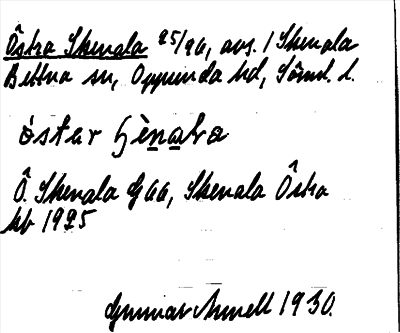 Östra Skenala 25/26, avs. / Skenala
Bettna sn, Oppunda hd, Söml. l.
östar
Ö. Skenala Gaa, Skenala Östra
kb 1925
Gunnar Arnell 1930.